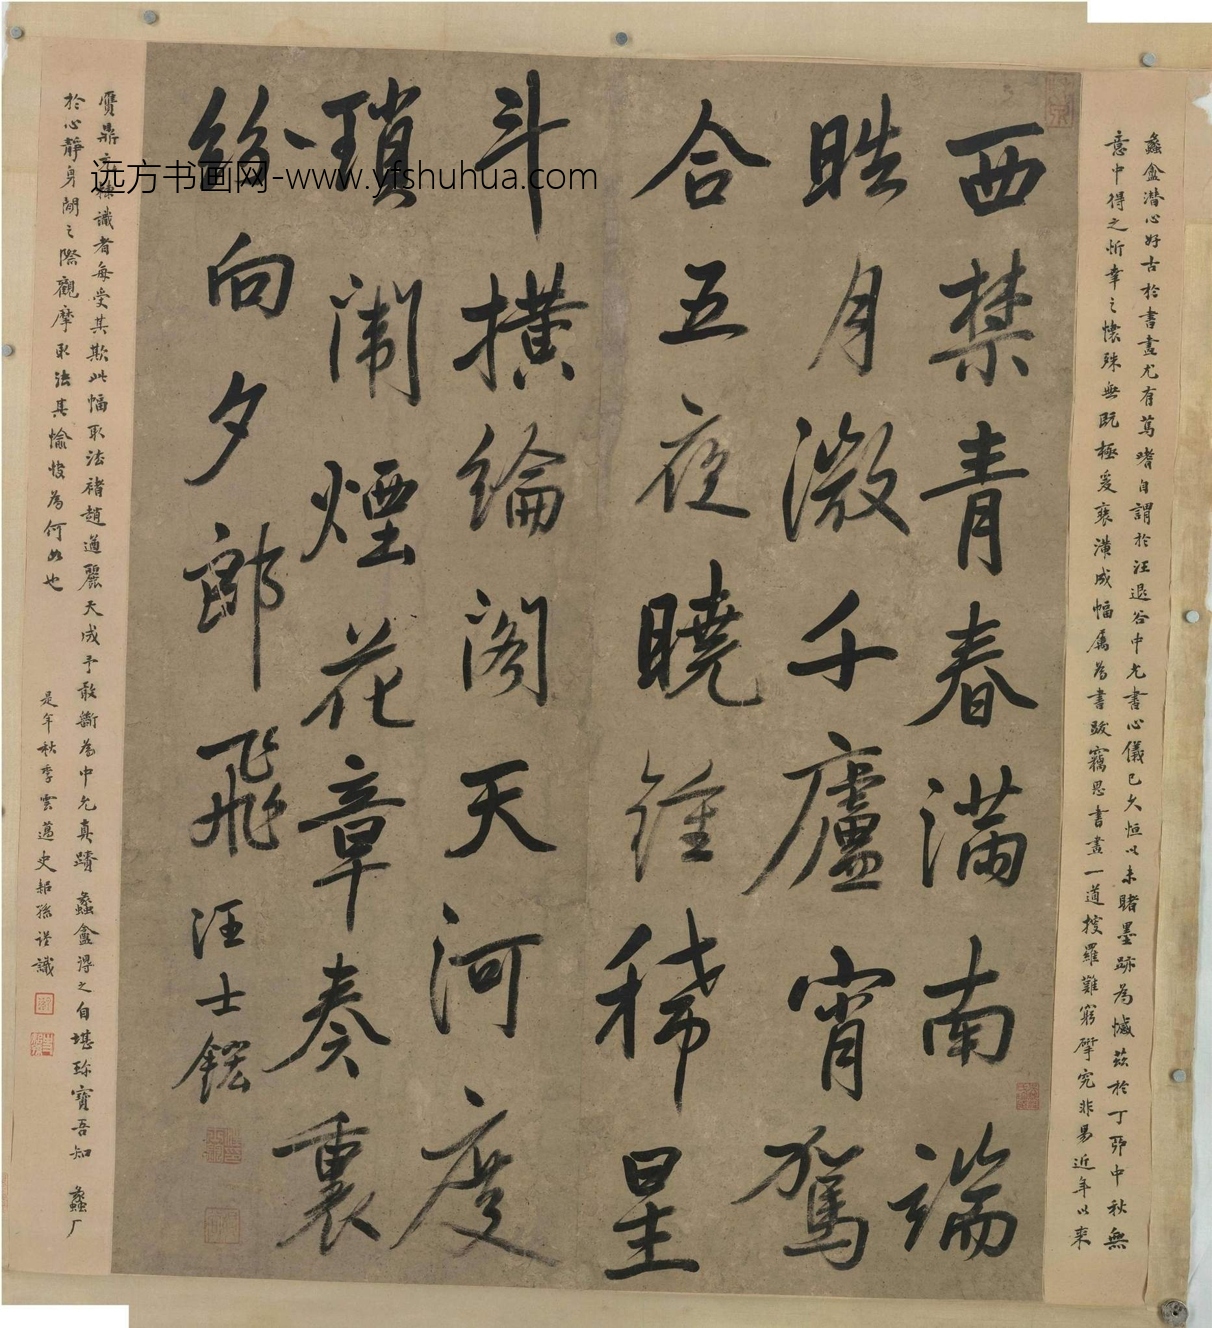 蠡盦潛心好古於書畫尤有篤嗜自謂於汪退谷中允書心儀已久恒以未睹墨跡為憾茲於丁卯中秋無
意中得之忻幸之懷殊無既極爰裝潢成幅屬為書跋竊思書畫一道搜羅難窮擘究非易近年以來
西禁青春滿南端
晧月微千廬宵駕
合五夜曉鐘稀星
斗橫綸閣天河度
瑣闈煙花章奏裏
絲向夕郎飛
汪士鋐
贗鼎識者每受其欺此幅取法褚趙遒麗天成予敢斷為中允真蹟 蠡盦得之自堪珍寶吾知 蠡厂
於心靜身閒之際觀摩取法其愉快為何如也
是年秋季雲邁史超孫謹識
远方书画网-www.yfshuhua.com